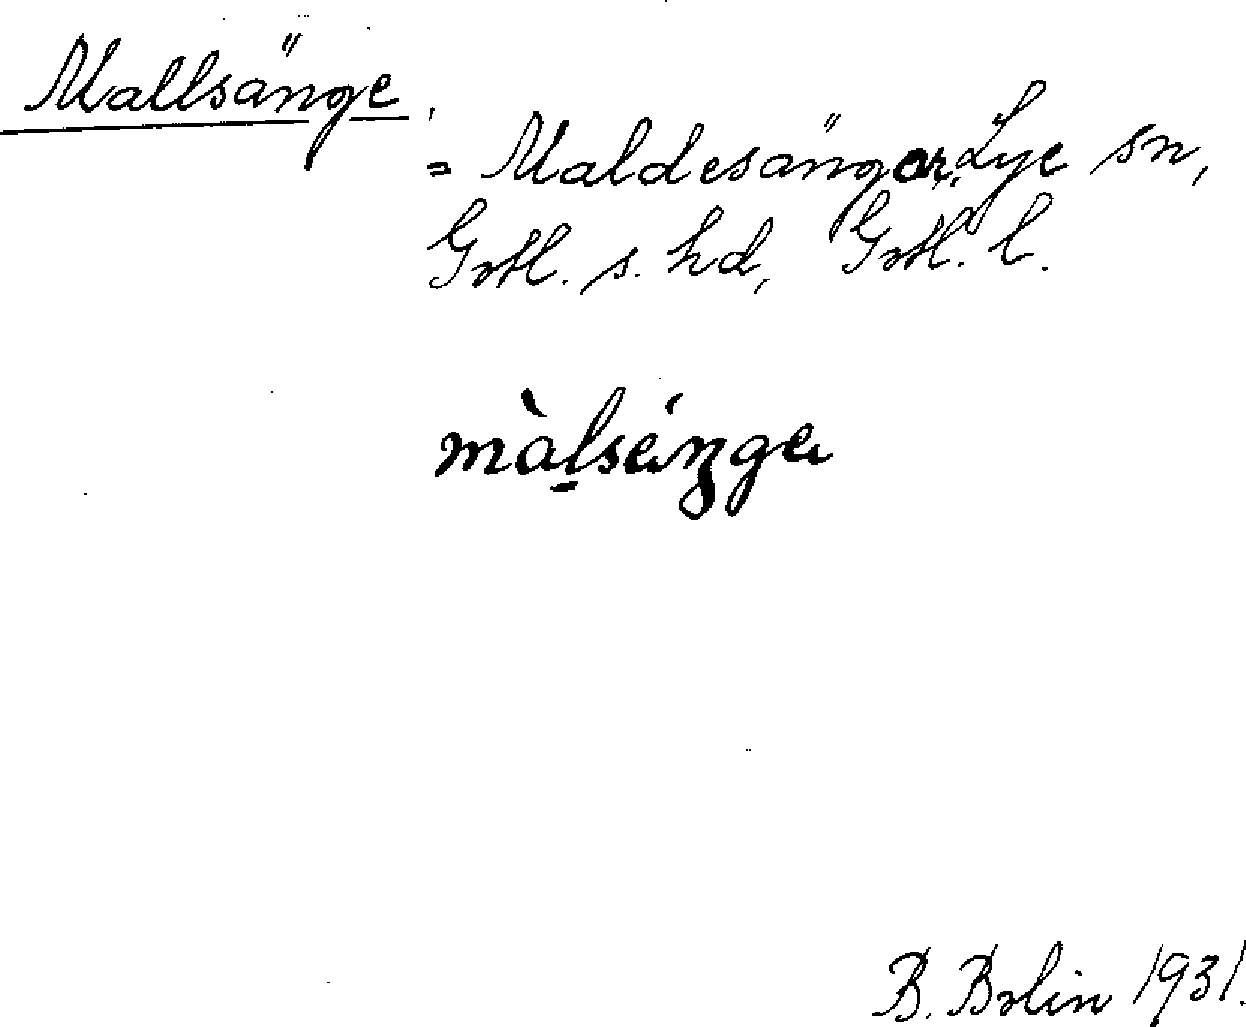 Mallsänge,
= Maldesängar, Lye sn,
Gotl. s. hd, Gotl. l.
màlsęŋgɐ
B. Bolin 1931.